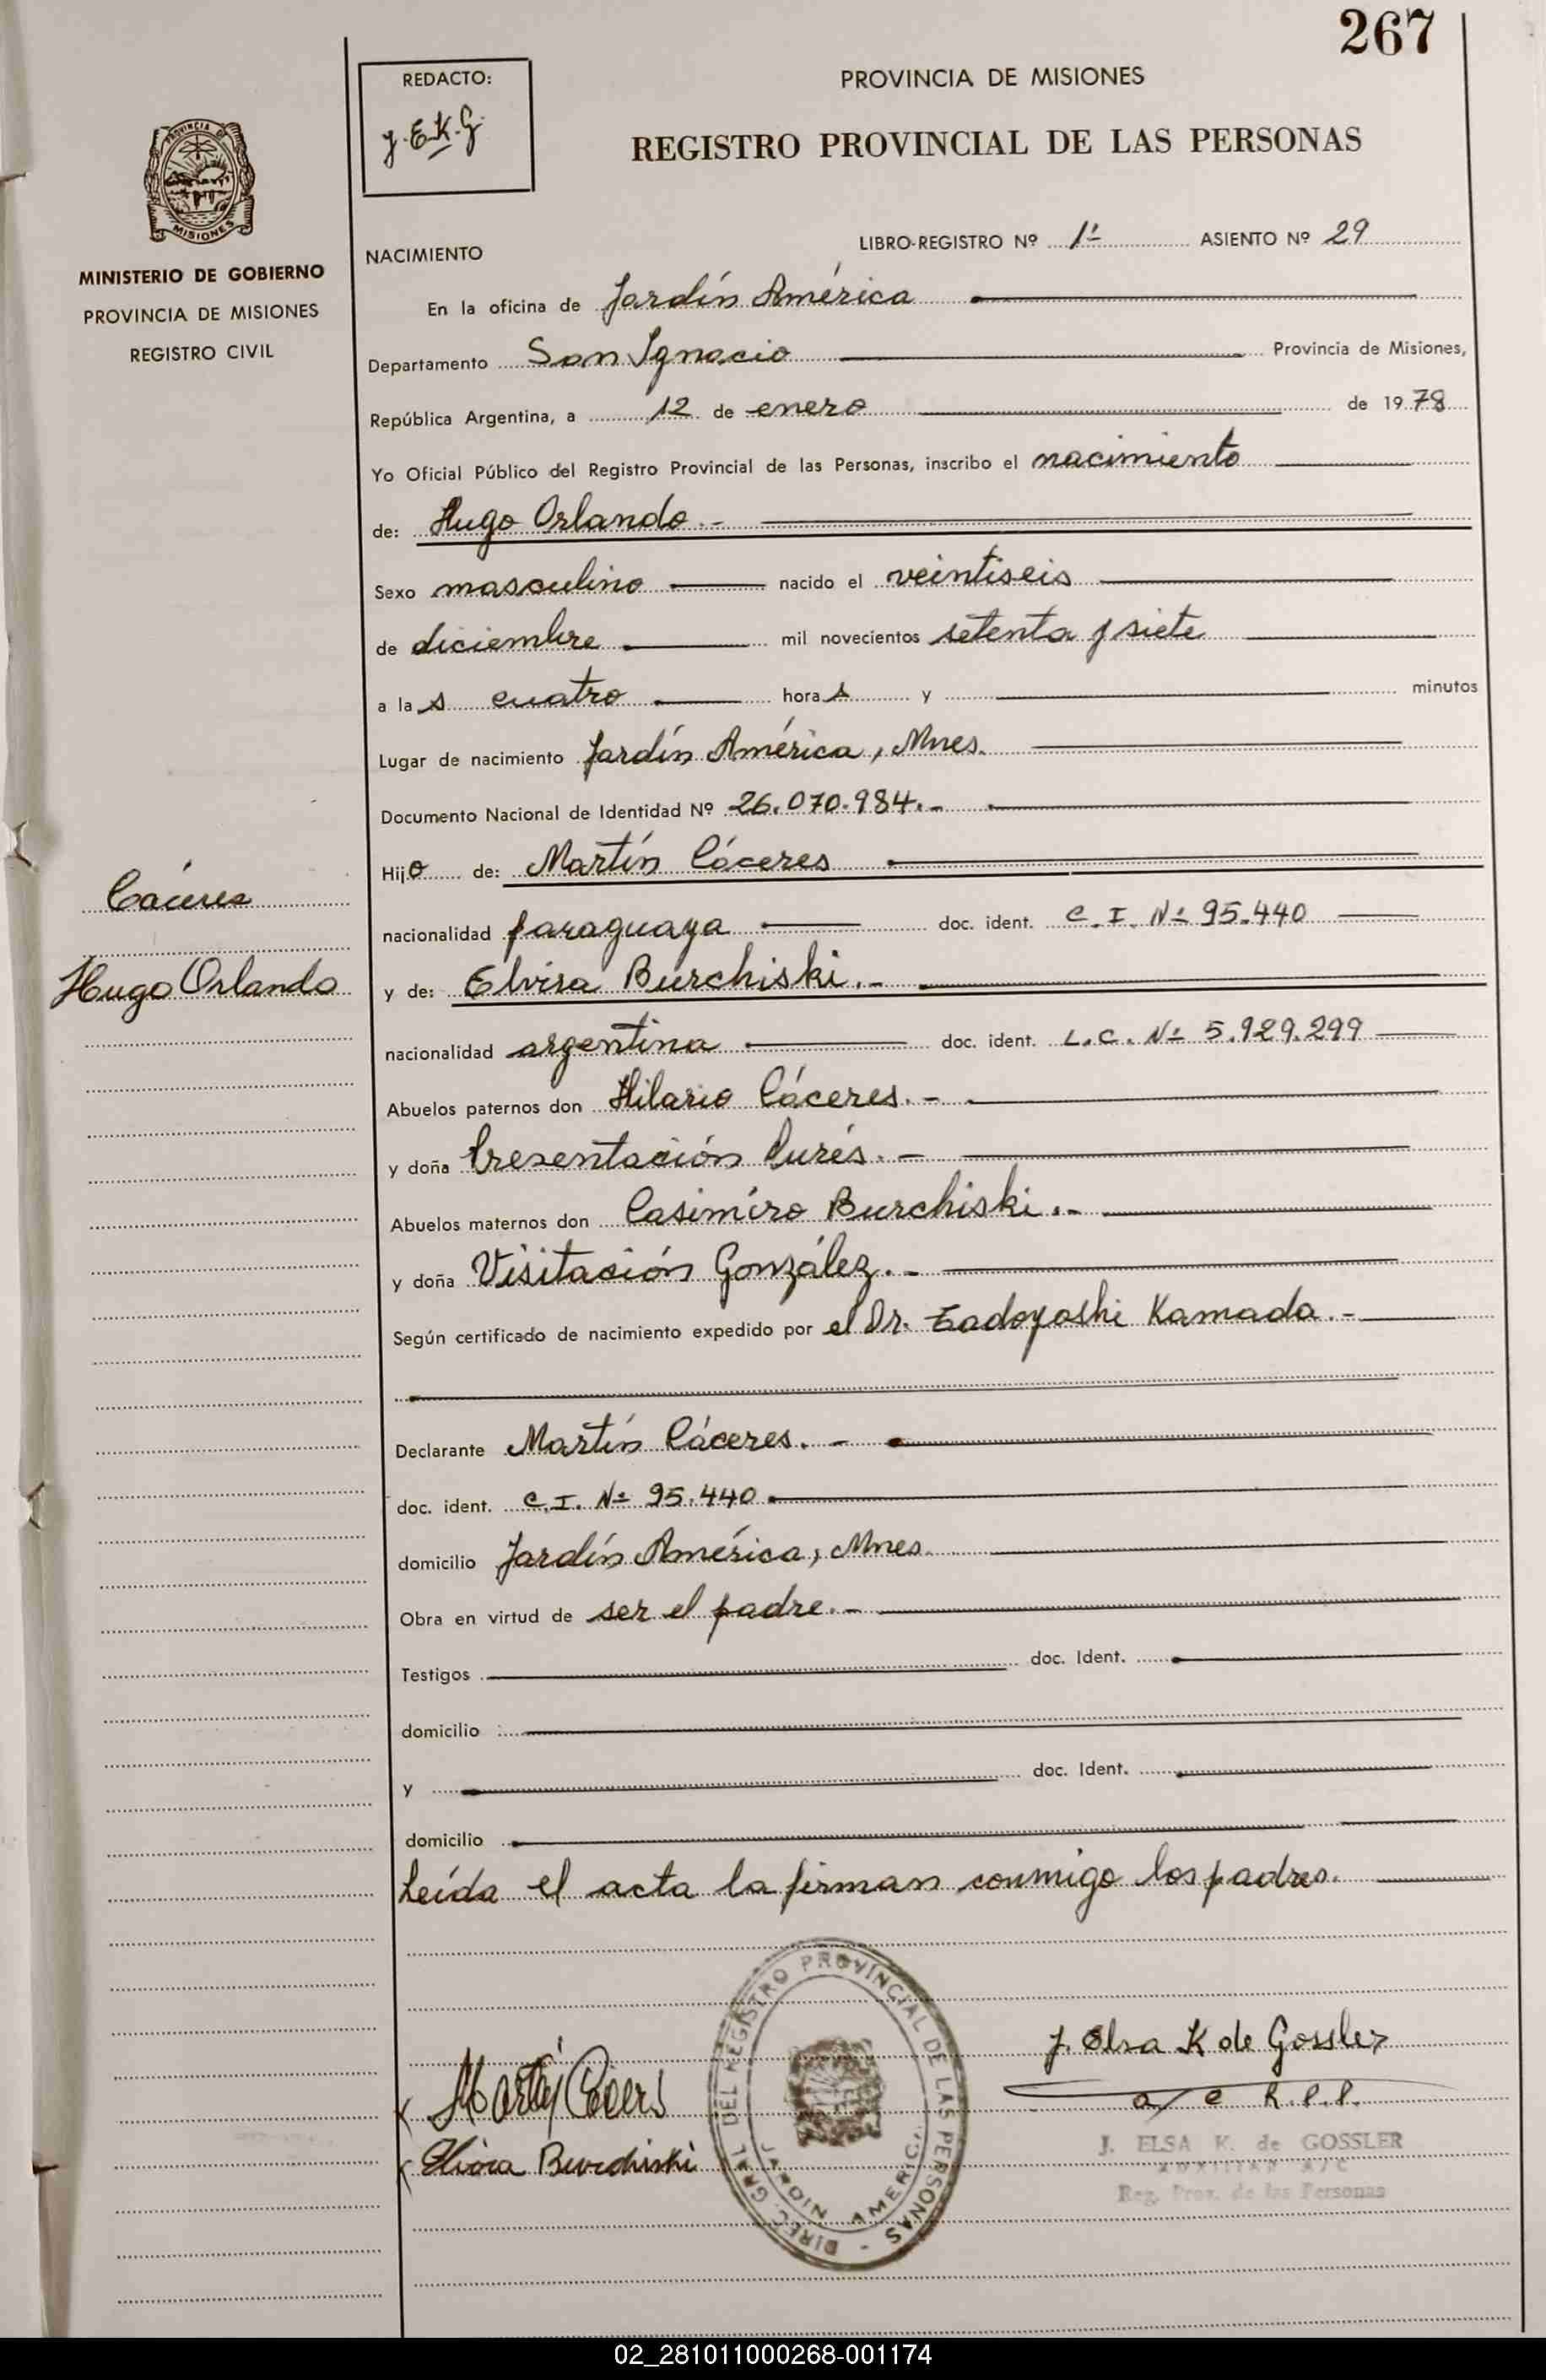 267
REDACTO:
J.E.K.G.
PROVINCIA DE MISIONES
REGISTRO PROVINCIAL DE LAS PERSONAS
PROVINCIA DE
MISIONES
MINISTERIO DE GOBIERNO
PROVINCIA DE MISIONES
REGISTRO CIVIL
LIBRO-REGISTRO Nº 1º ASIENTO Nº 29
NACIMIENTO
En la oficina de Jardín América
Departamento San Ignacio Provincia de Misiones,
República Argentina, a 12 de enero de 1978
Yo Oficial Público del Registro Provincial de las Personas, inscribo el nacimiento
de: Hugo Orlando.-
Sexo masculino nacido el veintiseis
de diciembre mil novecientos setenta y siete
a las cuatro horas y minutos
Lugar de nacimiento Jardín América, Mnes.
Documento Nacional de Identidad Nº 26.070.984.-
Hijo de: Martín Cáceres
Cáceres
nacionalidad paraguaya doc. ident. C.I. Nº 95.440
Hugo Orlando
y de: Elvira Burchiski.-
nacionalidad argentina doc. ident. L.C. Nº 5.929.299
Abuelos paternos don Hilario Cáceres.-
y doña Presentación
Abuelos maternos don Casimiro Burchiski.-
y doña Visitación González.-
Según certificado de nacimiento expedido por el Dr. Tadoyoshi Kamada.-
Declarante Martín Cáceres.-
doc. ident. C.I. Nº 95.440
domicilio Jardín América, Mnes.
Obra en virtud de ser el padre.-
Testigos doc. Ident.
domicilio
y doc. Ident.
domicilio
Leída el acta la firman conmigo los padres.
DIREC. GRAL. DEL REGISTRO PROVINCIAL DE LAS PERSONAS -
JARDIN AMERICA
J. Elsa K de Gossler
a/c R.P.P.
Martín Cáceres
Elvira Burchiski
J. ELSA K. de GOSSLER
AUXILIAR A/C
Reg. Prov. de las Personas
02_281011000268-001174